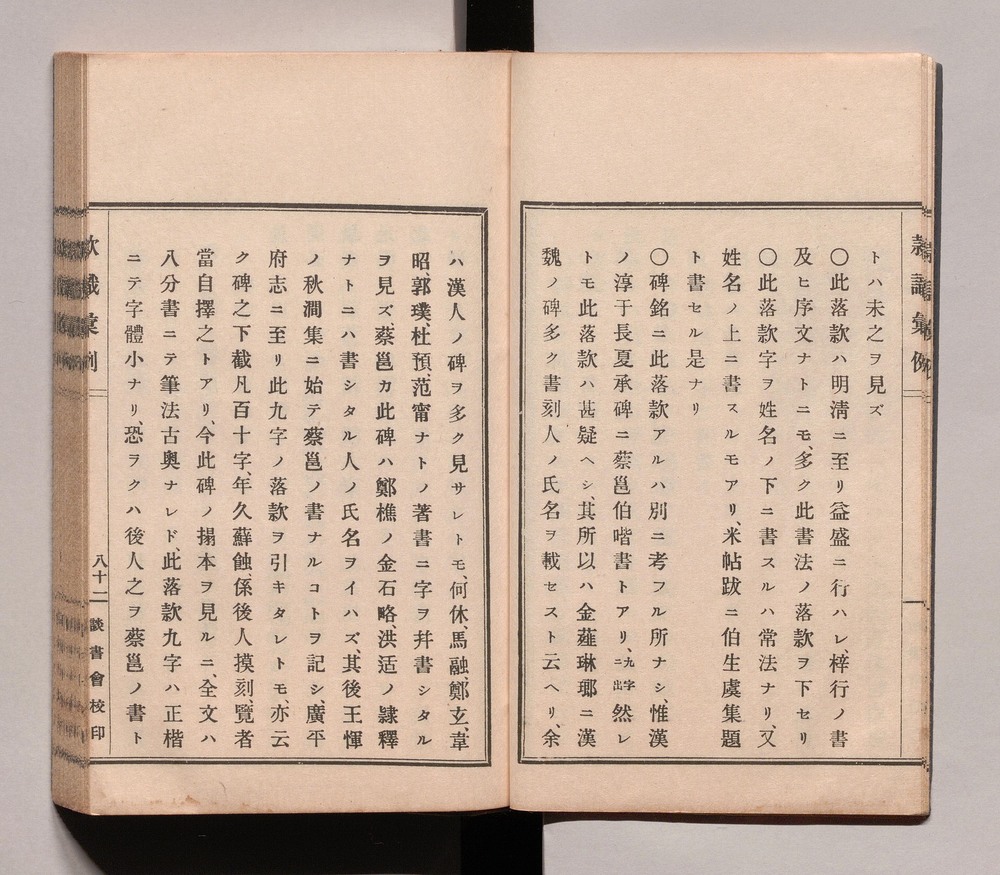 トハ未之ヲ見ズ
〇此落款ハ明淸ニ至リ益盛ニ行ハレ、梓行ノ書
及ヒ序文ナトニモ、多ク此書法ノ落款ヲ下セリ
〇此落款字ヲ姓名ノ下ニ書スルハ常法ナリ、又
姓名ノ上ニ書スルモアリ、米帖跋ニ伯生虞集題
ト書セル是ナリ
〇碑銘ニ此落款アルハ別ニ考フル所ナシ惟漢
ノ淳于長夏承碑ニ蔡邕伯喈書トアリ、九字ニ出然レ
トモ此落款ハ甚疑ヘシ、其所以ハ金薤琳瑯ニ漢
魏ノ碑多ク書刻人ノ氏名ヲ載セスト云ヘリ、余
ハ漢人ノ碑ヲ多ク見サレトモ、何休、馬融、鄭玄、韋
昭、郭璞、杜預、范甯ナトノ著書ニ字ヲ幷書シタル
ヲ見ズ、蔡邕カ此碑ハ鄭樵ノ金石略、洪适ノ隷釋
ナトニハ書シタル人ノ氏名ヲイハズ、其後王惲
ノ秋澗集ニ始テ蔡邕ノ書ナルコトヲ記シ、廣平
府志ニ至リ此九字ノ落款ヲ引キタレトモ、亦云
ク碑之下截凡百十字、年久蘇蝕、係後人摸刻、覽者
當自擇之トアリ、今此碑ノ搨本ヲ見ルニ、全文ハ
八分書ニテ筆法古奧ナレド、此落款九字ハ正楷
ニテ字體小ナリ、恐ヲクハ後人之ヲ蔡邕ノ書ト
款識彙例
八十一
談書會校印